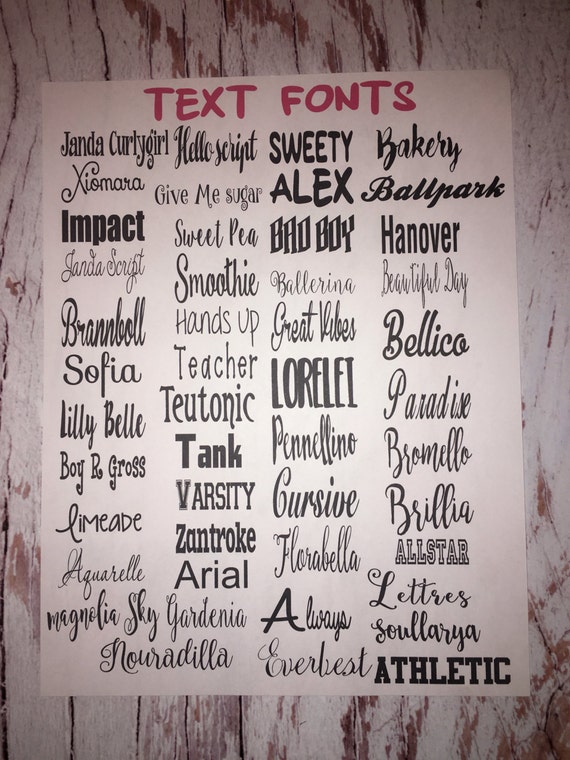 TEXT FONTS
Janda Curlygirl
Xiomara
Impact
Janda Script
Brannboll
Sofia
Lilly Belle
Boy R Gross
limeade
Aquarelle
magnolia Sky
Hello script
Give Me sugar
Sweet Pea
Smoothie
Hands Up
Teacher
Teutonic
Tank
VARSITY
Zantroke
Arial
Gardenia
Nouradilla
SWEETY
ALEX
BAD BOY
Ballerina
Great Vibes
LORELEI
Pennellino
Cursive
Florabella
Always
Everbest
Bakery
Ballpark
Hanover
Beautiful Day
Bellico
Paradise
Bromello
Brillia
ALLSTAR
Lettres
soullarya
ATHLETIC